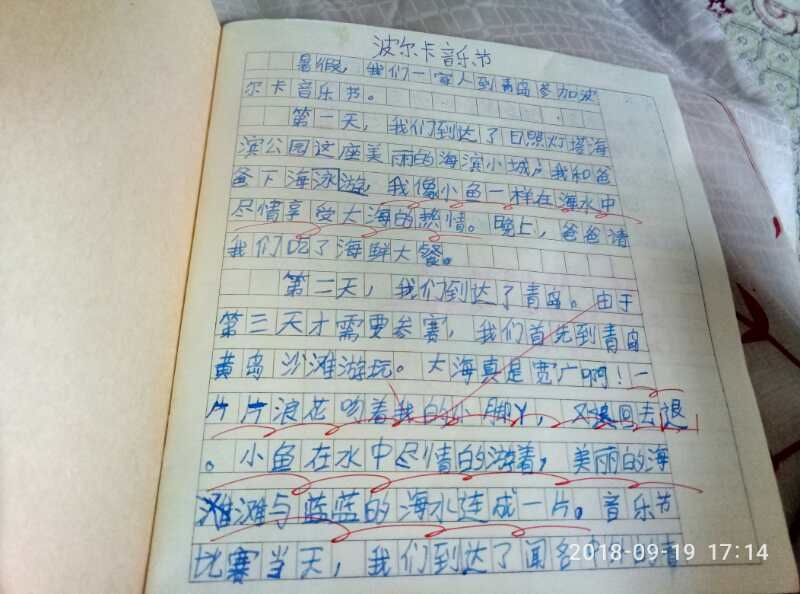 波尔卡音乐节
暑假，我们一家人到青岛参加波
尔卡音乐节。
第一天，我们到达了日照灯塔海
滨公园这座美丽的海滨小城，我和爸
爸下海泳游，我像小鱼一样在海水中
尽情享受大海的热情。晚上，爸爸请
我们吃了海鲜大餐。
第二天，我们到达了青岛。由于
第三天才需要参赛，我们首先到青岛
黄岛沙滩游玩。大海真是宽广啊！一
片片浪花吻着我的小脚丫，又退回去
。小鱼在水中尽情的游着，美丽的海
滩与蓝蓝的海水连成一片。音乐节
比赛当天，我们到达了闻名
2018-09-19 17:14